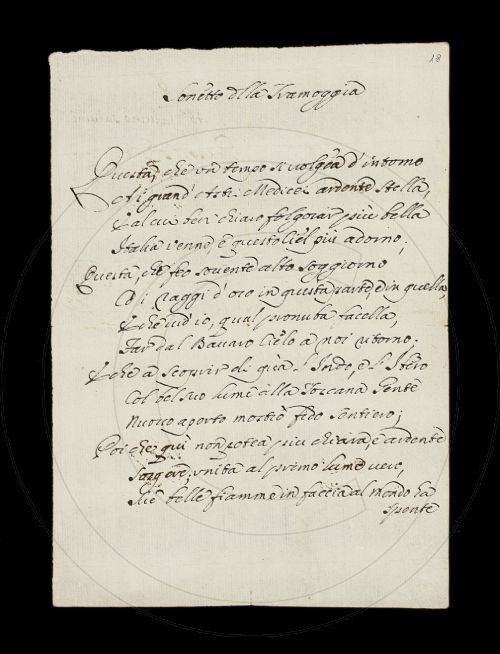 18
Sonetto dlla Tramoggia
Questa, che un tempo si volgea d'intorno
A i grand' Astri Medicei ardente stella,
E al cui ben chiaro folgorar più bella
Italia venne, e questo Ciel più adorno;
Questa, che feo sovente alto soggiorno
Co i raggi d'oro in questa parte, e in quella,
E che vid' io, qual pronuba facella,
Far dal Bavaro Cielo a noi ritorno;
E che a scoprir di quà l'Indo, e l'Ibero
Col bel suo lume alla Toscana Gente
Nuovo aperto mostrò fido sentiero;
Poi che quì non potea più chiara, e ardente
Sorgere, unita al primo lume vero,
Sue belle fiamme in faccia al mondo ha
spente